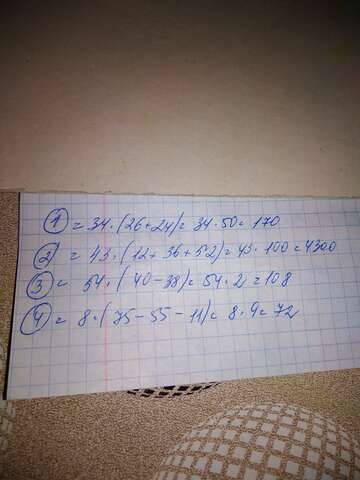 1 = 34·(26+24)= 34·50= 170
2 = 43·(12+36+52)=43·100=4300
3 = 54·(40-38)=54·2=108
4 = 8·(75-55-11)= 8·9=72